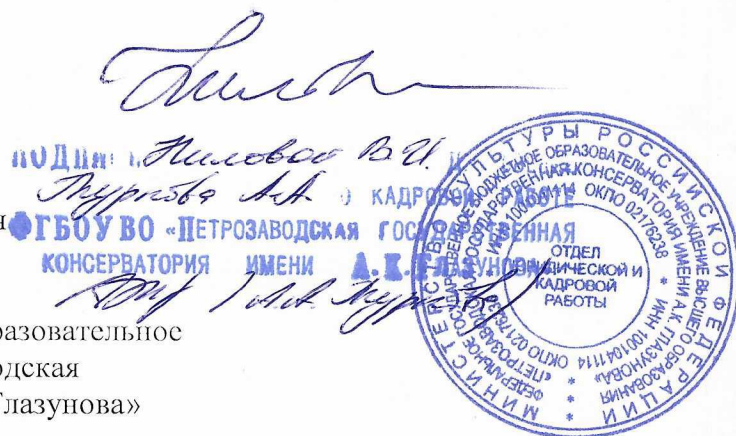 Ниловой В.И.
А.А. КАДРОВОЙ РАБОТЕ
ФГБОУ ВО «ПЕТРОЗАВОДСКАЯ ГОСУДАРСТВЕННАЯ
КОНСЕРВАТОРИЯ ИМЕНИ А.К. ГЛАЗУНОВА»
А.А.
разовательное
одская
Глазунова»
МИНИСТЕРСТВО КУЛЬТУРЫ РОССИЙСКОЙ ФЕДЕРАЦИИ
ФЕДЕРАЛЬНОЕ ГОСУДАРСТВЕННОЕ БЮДЖЕТНОЕ ОБРАЗОВАТЕЛЬНОЕ УЧРЕЖДЕНИЕ ВЫСШЕГО ОБРАЗОВАНИЯ
«ПЕТРОЗАВОДСКАЯ ГОСУДАРСТВЕННАЯ КОНСЕРВАТОРИЯ ИМЕНИ А.К. ГЛАЗУНОВА»
ИНН 1001041114 ОКПО 02176238
ОТДЕЛ
ЮРИДИЧЕСКОЙ И
КАДРОВОЙ
РАБОТЫ